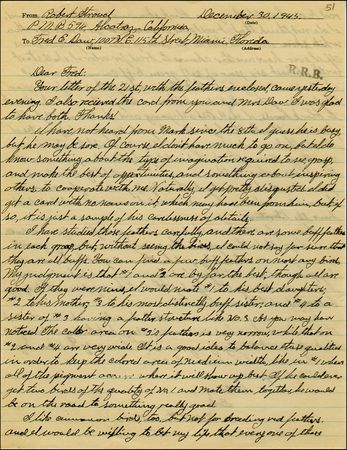 51
From Robert Stroud December 30, 1945.
P.M.B. 594, Alcatraz, California
To Fred E. Daw, 100 N.E. 115th Street, Miami, Florida
(Name) (Address)
R.R.B.
Dear Fred:
Your letter of the 21st, with the feathers enclosed came yesterday
evening. I also received the card from you and Mrs Daw. I was glad
to have both. Thanks!
I have not heard from Mark since the 8th. I guess he is busy,
but he may be sore. Of course, I don't have much to go on, but I do
know something about the type of imagination required to see, grasp,
and make the best of opportunities, and something about inspiring
others to cooperate with me. Naturally, I get pretty disgusted. I did
get a card with no name on it which may have been from him, but if
so, it is just a sample of his carelessness of
I have studied these feathers carefully, and there are some buff feathers
in each group, but, without seeing the birds, I could not say for sure that
they are all buffs. You can find a few buff feathers on most any birds.
My judgment is that #1 and #3 are by far the best, though all are
good. If they were mine, I would mate #1 to his best daughter,
#2 to his mother, #3 to his most distinctly buff sister, and #4 to a
sister of #3 having a feather structure like No. 3. As you may have
noticed the color area on #3's feathers is very narrow while that on
#2 and #4 are very wide. It is a good idea to balance these qualities
in order to keep the colored area of medium width, like in #1, when
all of the pigment where it will show up best. If he could ever
get two birds of the quality of No. 1 and mate them together, he would
be on the road to something really good.
I like cinnamon birds, too, but not for breeding red feathers,
and I would be willing to bet my life that every one of those